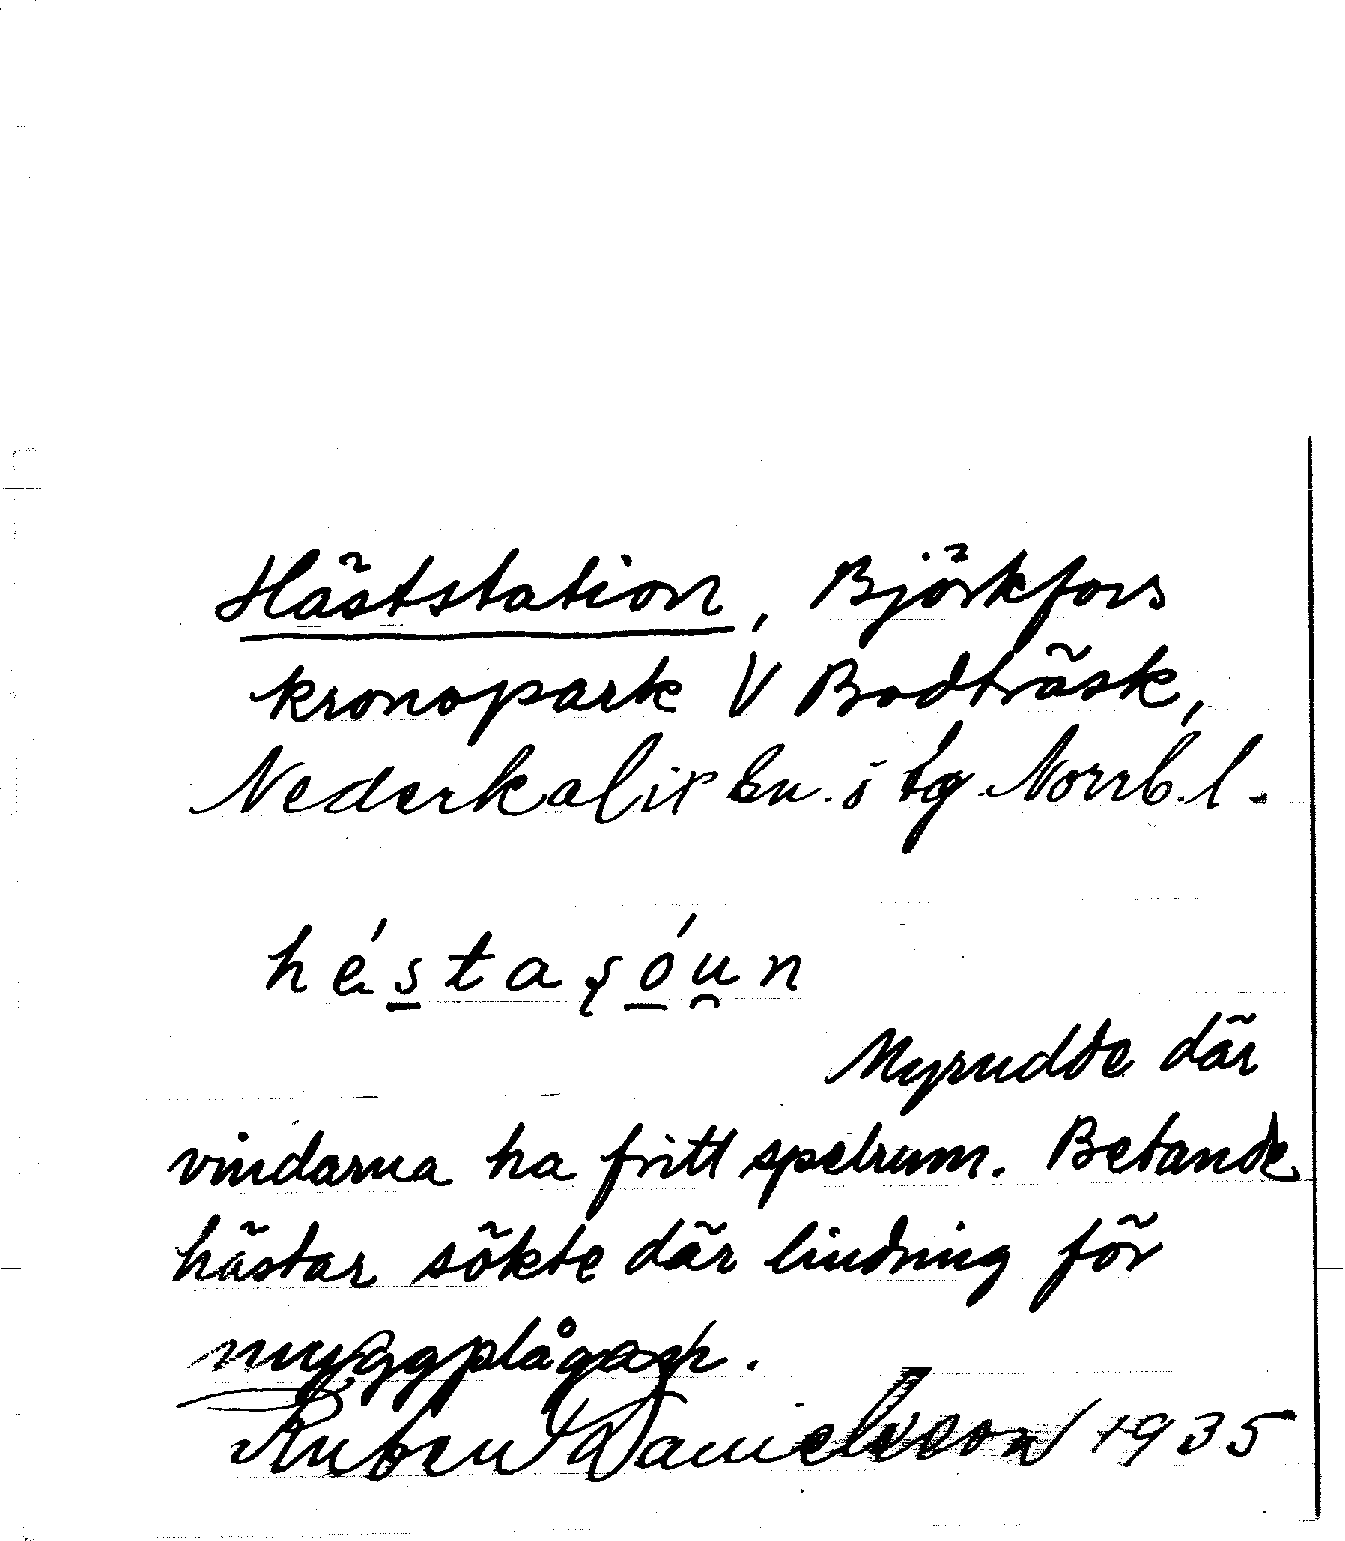 Häststation, Björkfors
kronopark V Bodträsk,
Nederkalix sn. o tg Norrb. l.
héstaşóu̯n
Myrudde där
vindarna ha fritt spelrum. Betande
hästar sökte där lindring för
myggplågan.
Ruben Danielsson 1935